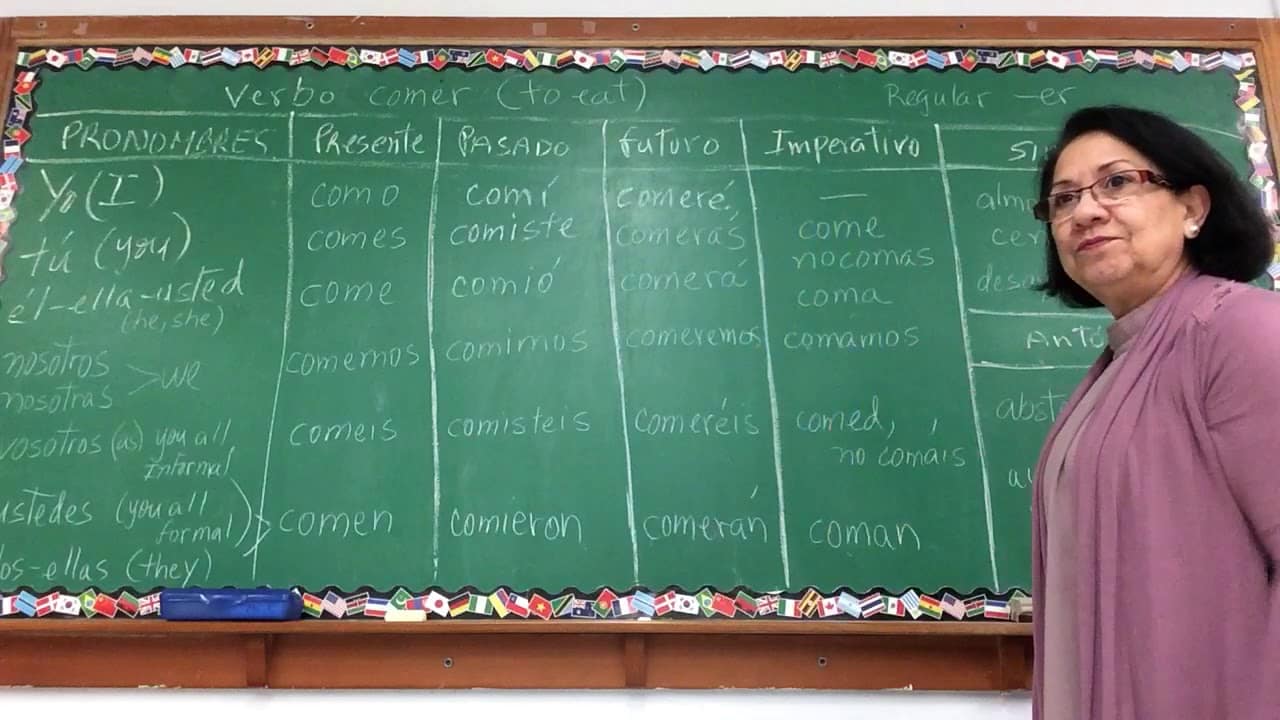 Verbo comer (to eat) Regular -er
PRONOMBRES Presente PASADO futuro Imperativo
Yo (I) como comí comeré —
tú (you) comes comiste comerás come
no comas
él-ella-usted come comió comerá coma
(he, she)
nosotros > we comemos comimos comeremos comamos
nosotras
vosotros (as) you all coméis comisteis comeréis comed,
Informal no comáis
ustedes (you all
formal) comen comieron comerán coman
ellas (they)